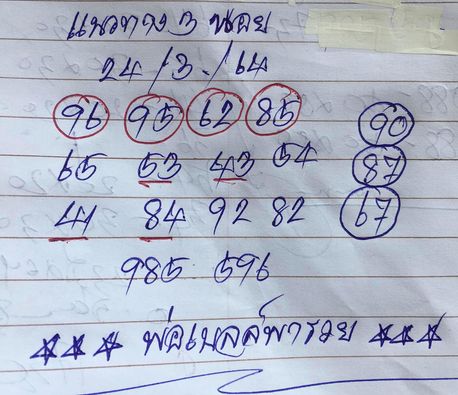 แนวทาง 3 นอย
24/3./64
96 95 62 85 90
65 53 43 54 87
41 84 92 82 67
985 596
☆☆☆ พ่อเบลล์พารวย ☆☆☆